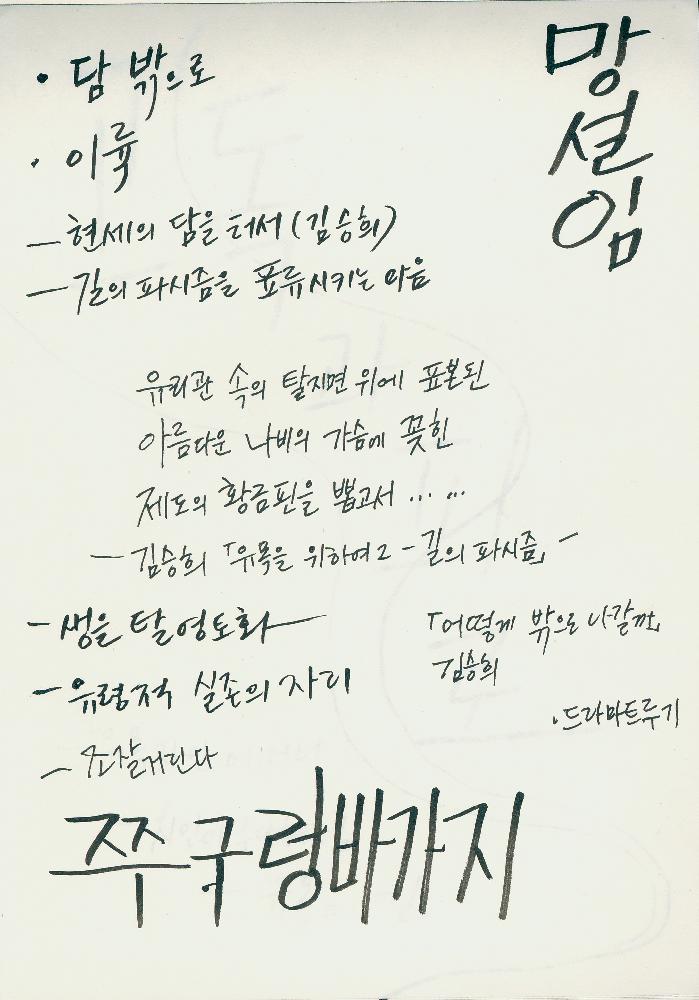 망설임
· 담 밖으로
· 이륙
– 현세의 담을 터서 (김승희)
– 길의 파시즘을 표류시키는 마음
유리관 속의 탈지면 위에 표본된
아름다운 나비의 가슴에 꽂힌
제도의 황금핀을 뽑고서 … …
– 김승희 「유목을 위하여 2 – 길의 파시즘」 –
– 생을 탈영토화
「어떻게 밖으로 나갈까」
김승희
– 유령적 실존의 자리
· 드라마트루기
– 조잘거린다
쭈구렁바가지